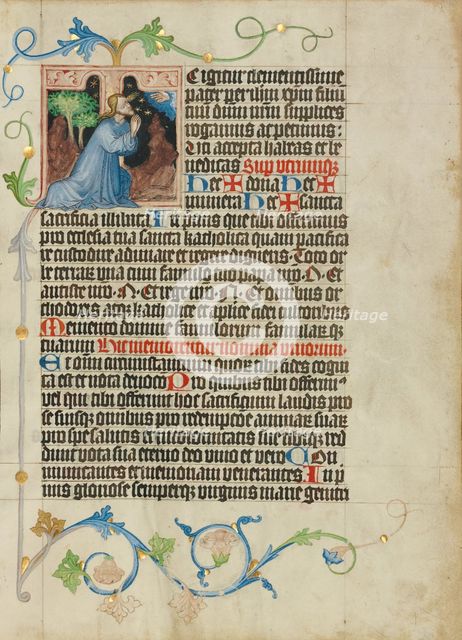 E igitur clementissime
pater per ihm xpm filiu
tuum dnm nrm supplices
rogamus ac petimus:
Uti accepta habeas et be
nedicas Sup utrumqꝫ
Hec ✠ dona Hec ✠
munera Hec ✠ sancta
sacrificia illibata In primis que tibi offerimus
pro ecclesia tua sancta katholica quam pacifica
re custodire adunare et regere digneris Toto or
be terraꝝ una cum famulo tuo papa nro · N · Et
antiste nro · N · Et rege nro · N · Et omnibus or
thodoxis atqꝫ katholice et aplice fidei cultoribus
Memento domine famulorum famularumqꝫ
tuarum Hic memorentur nomina vivorum
Et omniu circumstantium quoꝝ tibi fides cogni
ta est et nota devocio Pro quibus tibi offerimꝰ
vel qui tibi offerunt hoc sacrificium laudis pro
se suisqꝫ omnibus pro redempcioe animaꝝ suaꝝ
pro spe salutis et incolumitatis sue tibiqꝫ red
dunt vota sua eterno deo vivo et vero Com
municantes et memoriam venerantes In p
mis gloriose semperqꝫ virginis marie genitri
Heritage